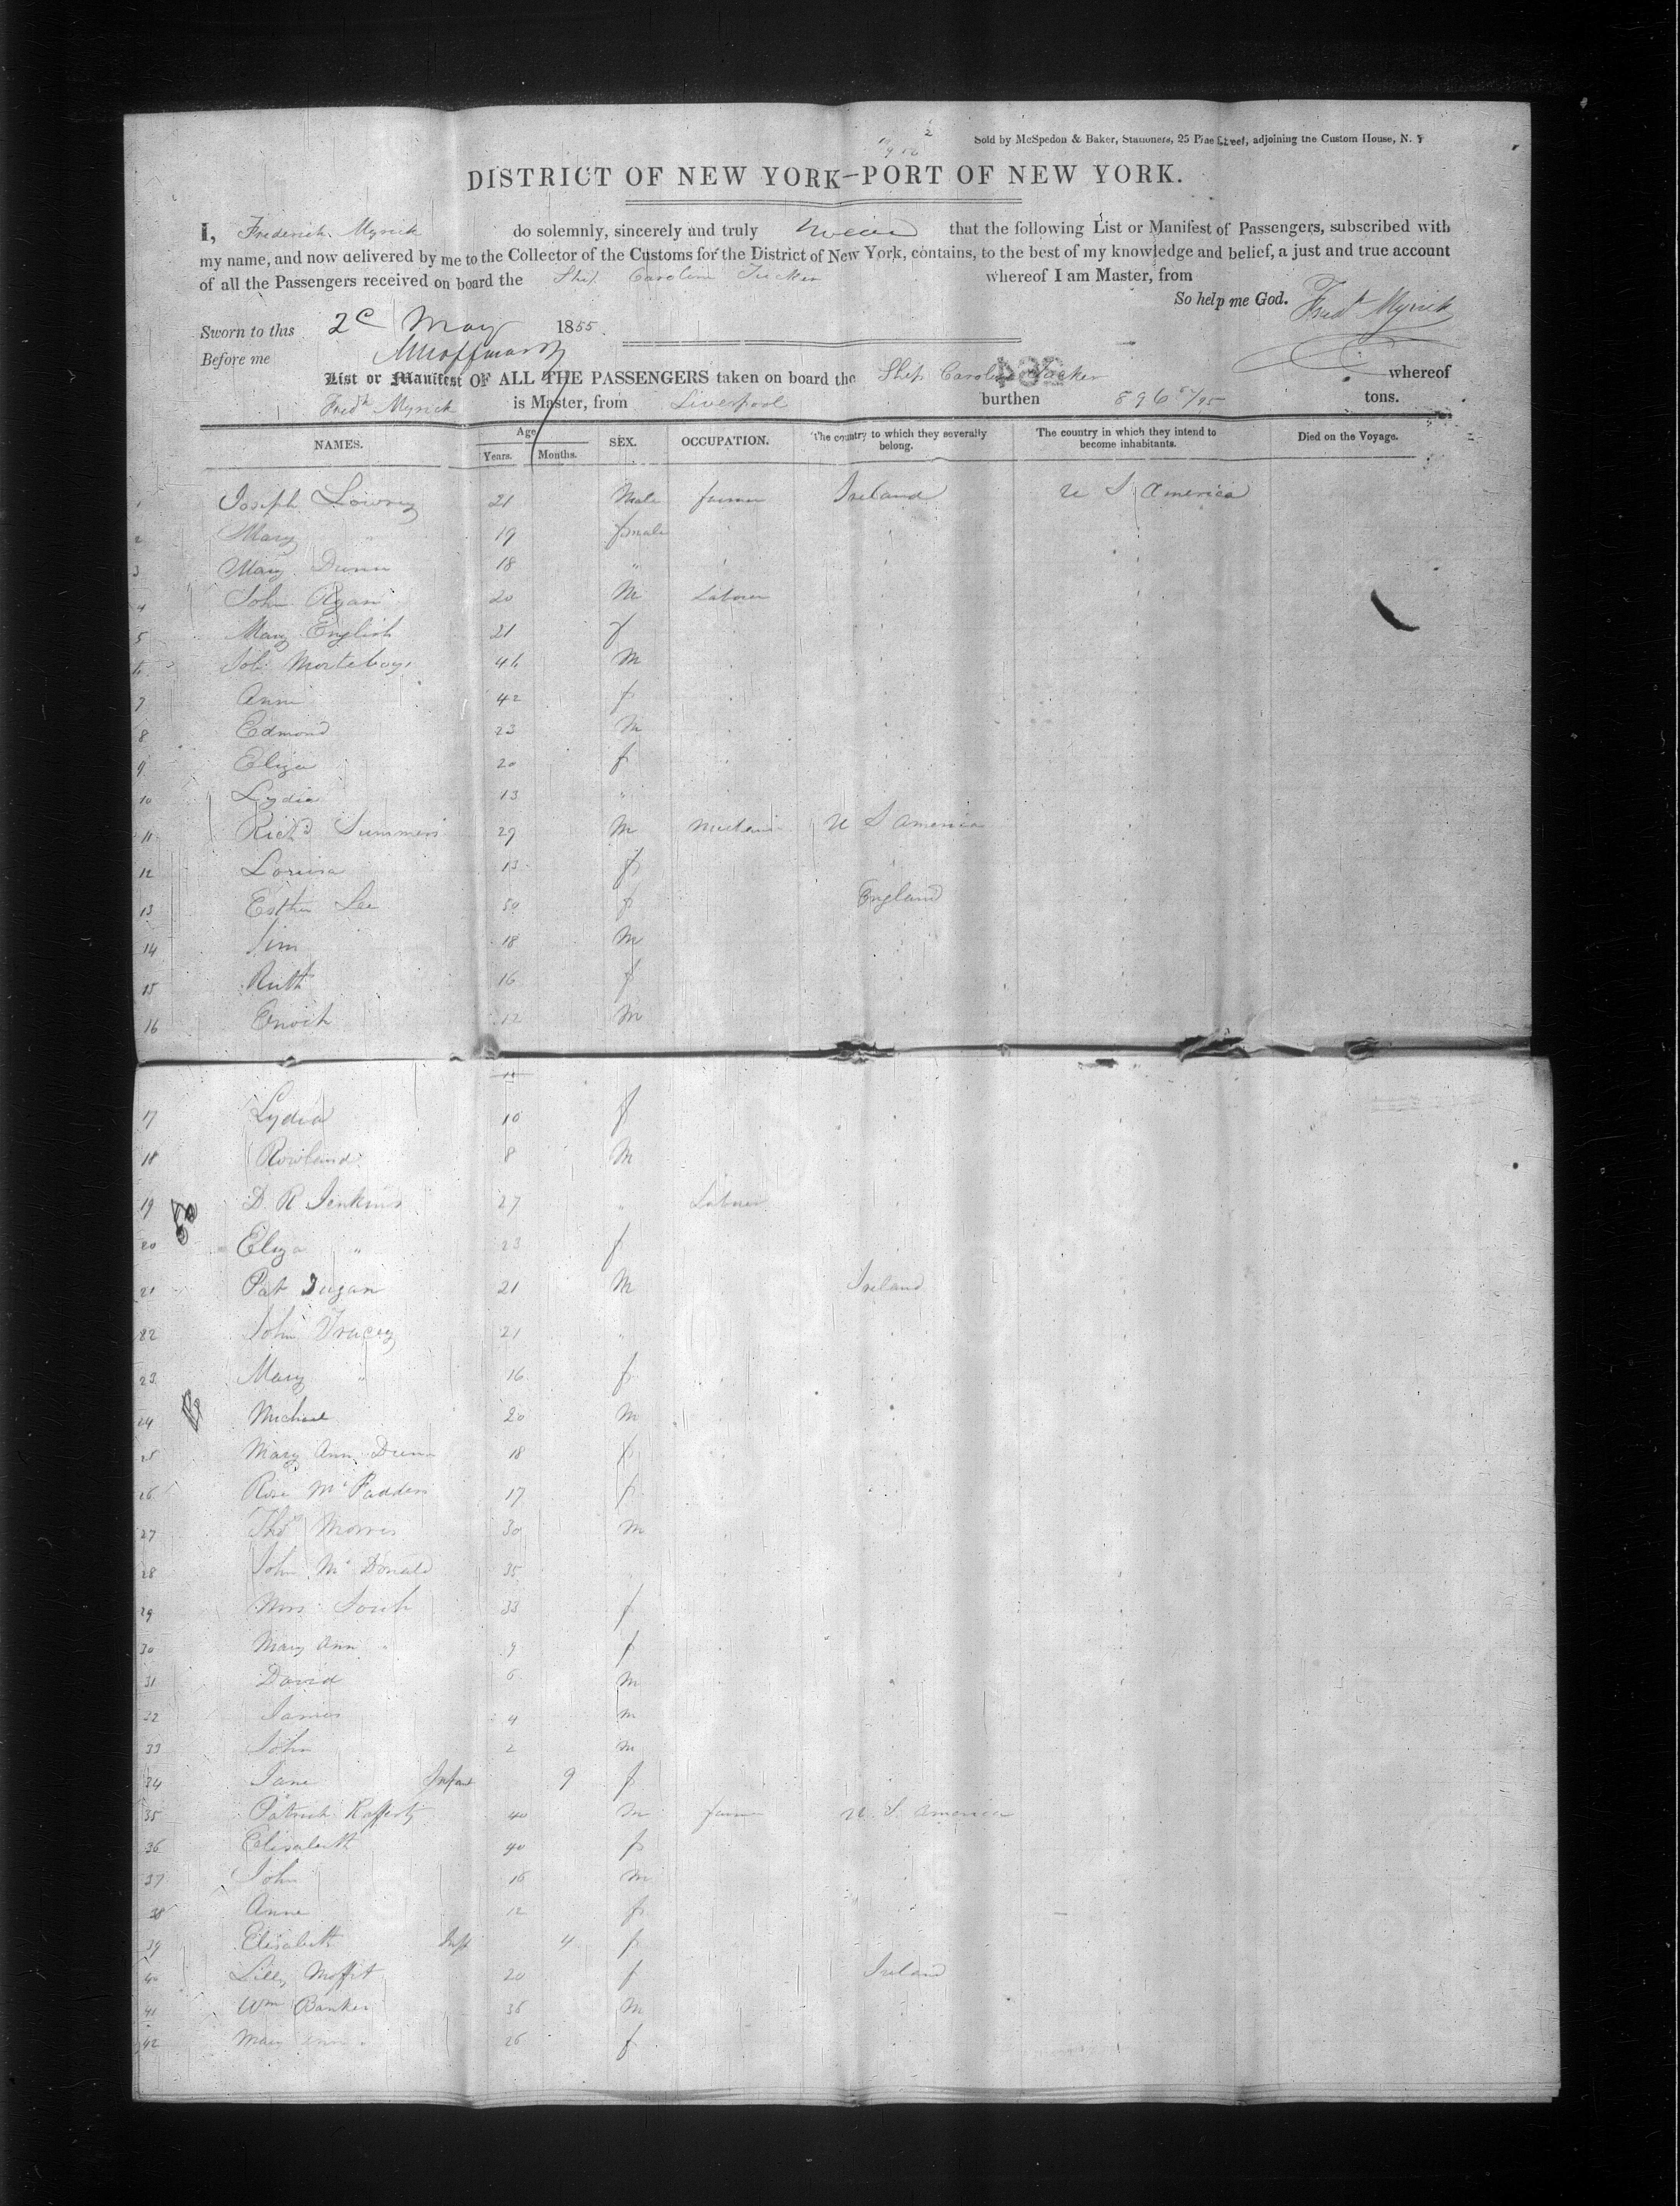 Sold by McSpedon & Baker, Stationers, 25 Pine Street, adjoining the Custom House, N. Y
DISTRICT OF NEW YORK—PORT OF NEW YORK.
I, Frederick Myrick do solemnly, sincerely and truly swear that the following List or Manifest of Passengers, subscribed with
my name, and now delivered by me to the Collector of the Customs for the District of New York, contains, to the best of my knowledge and belief, a just and true account
of all the Passengers received on board the Ship Caroline Tucker whereof I am Master, from
So help me God. Fredk Myrick
Sworn to this 2 May 1855.
Before me
List or Manifest OF ALL THE PASSENGERS taken on board the Ship Caroline Tucker whereof
Fredk Myrick is Master, from Liverpool burthen 896 /95 tons.
NAMES. Age SEX. OCCUPATION. The country to which they severally belong. The country in which they intend to become inhabitants. Died on the Voyage.
Years. Months.
1 Joseph Lowrey 21 Male farmer Ireland U S America
2 Mary " 19 female
3 Mary Dunn 18 "
4 John Ryan 20 M Laborer
5 Mary English 21 f
6 46 M
7 Ann 42 f
8 Edmond 23 M
9 Eliza 20 f
10 Lydia 13 "
11 Richd Summers 29 M Mechanic U S America
12 Louisa 13 f
13 Esther Lee 50 f England
14 Jim 18 M
15 Ruth 16 f
16 Enoch 12 M
17 Lydia 10 f
18 Rowland 8 M
19 D. R Jenkins 27 " Laborer
20 Eliza " 23 f
21 Pat Dugan 21 M Ireland
22 John Tracey 21 "
23 Mary " 16 f
24 Michael 20 M
25 Mary Ann Dunn 18 f
26 Rose McFadden 17 f
27 Thos Morris 30 M
28 John McDonald 35
29 Mrs 33 f
30 Mary Ann " 9 f
31 David 6 M
32 James 4 M
33 John 2 M
34 Jane Infant 9 f
35 Patrick Rafferty 40 M farmer U. S. America
36 Elisabeth 40 f
37 John 16 M
38 Anne 12 f
39 Elisabeth Inft 4 f
40 Lilly Moffit 20 f Ireland
41 Wm Banker 36 M
42 Mary Ann " 26 f